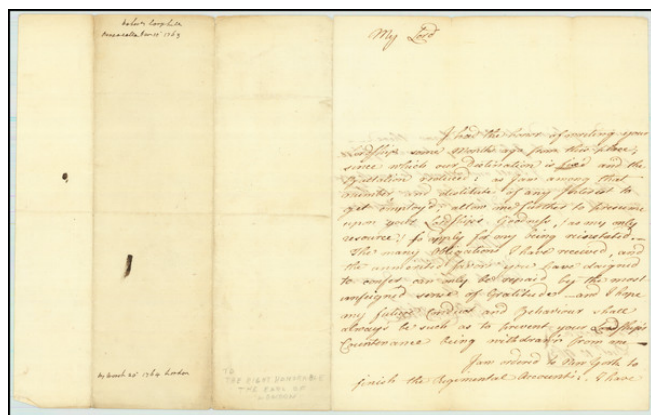 Robert Campbell
Pensacola Nov. 11 1763
Rcd March 25 1764 London
TO
THE RIGHT HONORABLE
THE EARL OF
LONDON
My Lord
I had the honor of writing your
Lordship some Months ago from this place,
since which our Destination is fixed and the
Battalion reduced: as I am among that
Number and destitute of any Interest to
get employ'd allow me further to presume
upon your Lordships Goodness, (as my only
resource) to apply for my being reinstated
The many Obligations I have received, and
the unmerited favors you have deigned
to confer can only be repaid by the most
unfeigned sense of Gratitude and I hope
my future Conduct and Behaviour shall
always be such as to prevent your Lordship's
Countenance being withdrawn from me
I am ordered to New York to
finish the Regimental Accounts. I have